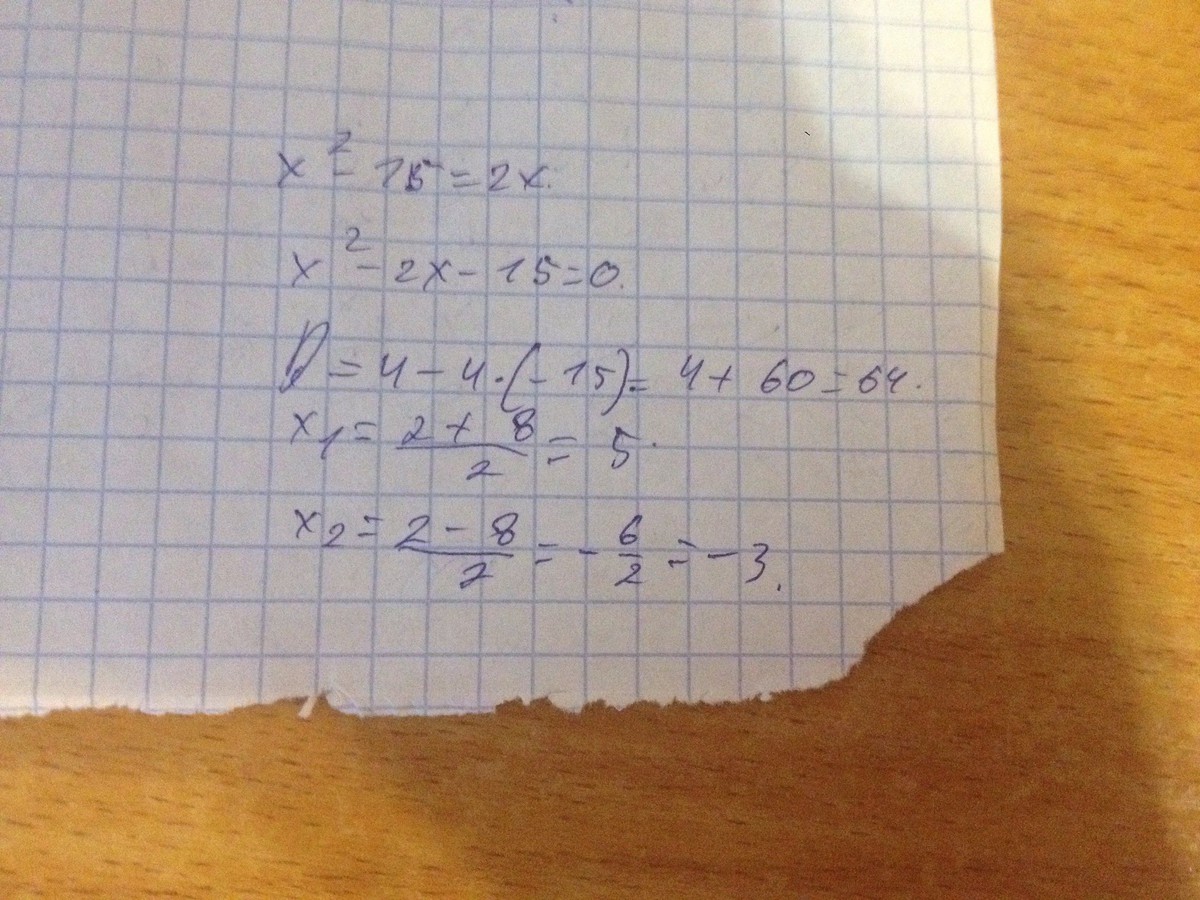 x² - 15 = 2x.
x² - 2x - 15 = 0.
D = 4 - 4·(-15) = 4 + 60 = 64.
x₁ = (2 + 8)/2 = 5.
x₂ = (2 - 8)/2 = - 6/2 = - 3.